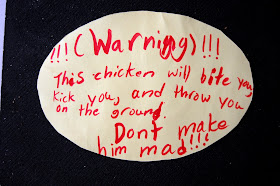 !!!(Warning)!!!
This chicken will bite you,
Kick you, and throw you
on the ground.
Dont make
him mad!!!